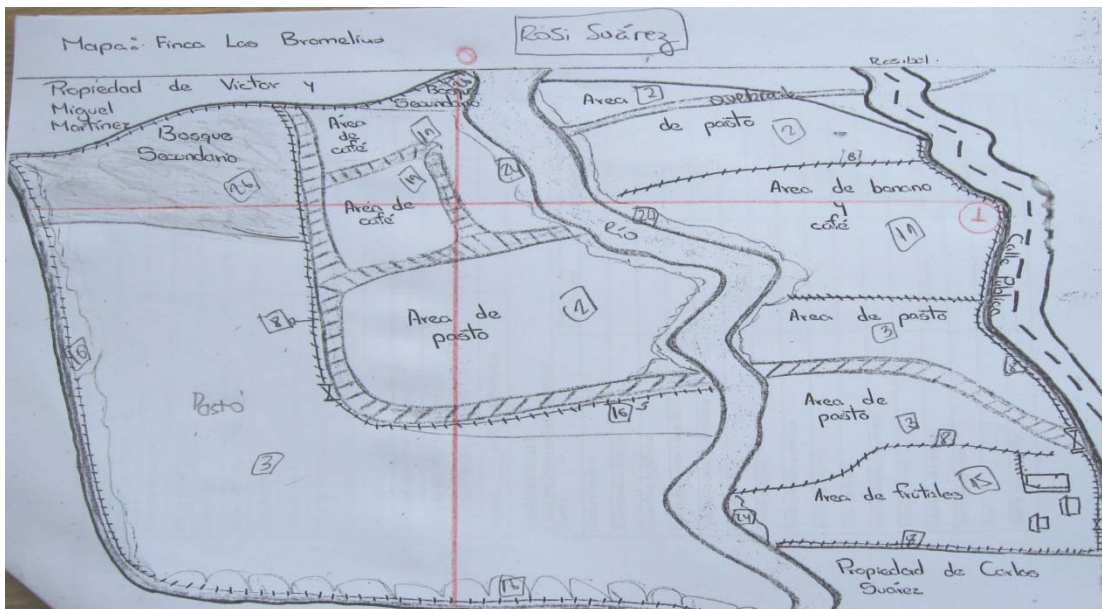 Mapa: Finca Las Bromelias
Rosi Suárez
Propiedad de Victor y
Miguel
Martínez
Bosque
Secundario
Bosque
Secundario
26
Area
de
café
Area de
café
Area 2
de pasto
2
quebrada
8
Area de banano
y
café
24
Río
Calle Pública
8
Area de
pasto
2
Area de pasto
3
16
Pasto
3
16
Area de
pasto
3
8
Area de frutales
15
24
7
12
Propiedad de Carlos
Suárez